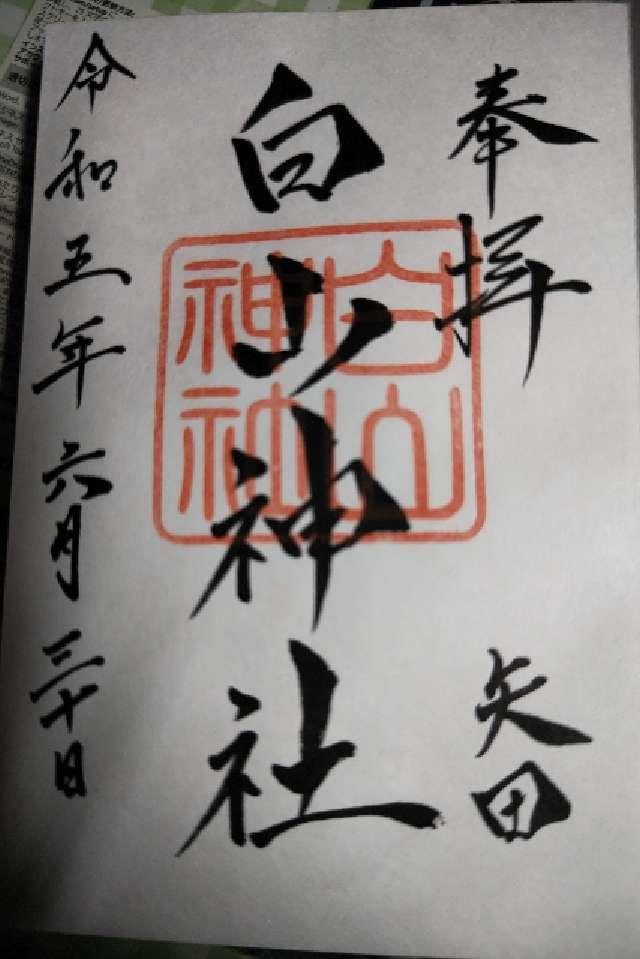 奉拝
矢田
白山神社
白山
神社
令和五年六月三十日